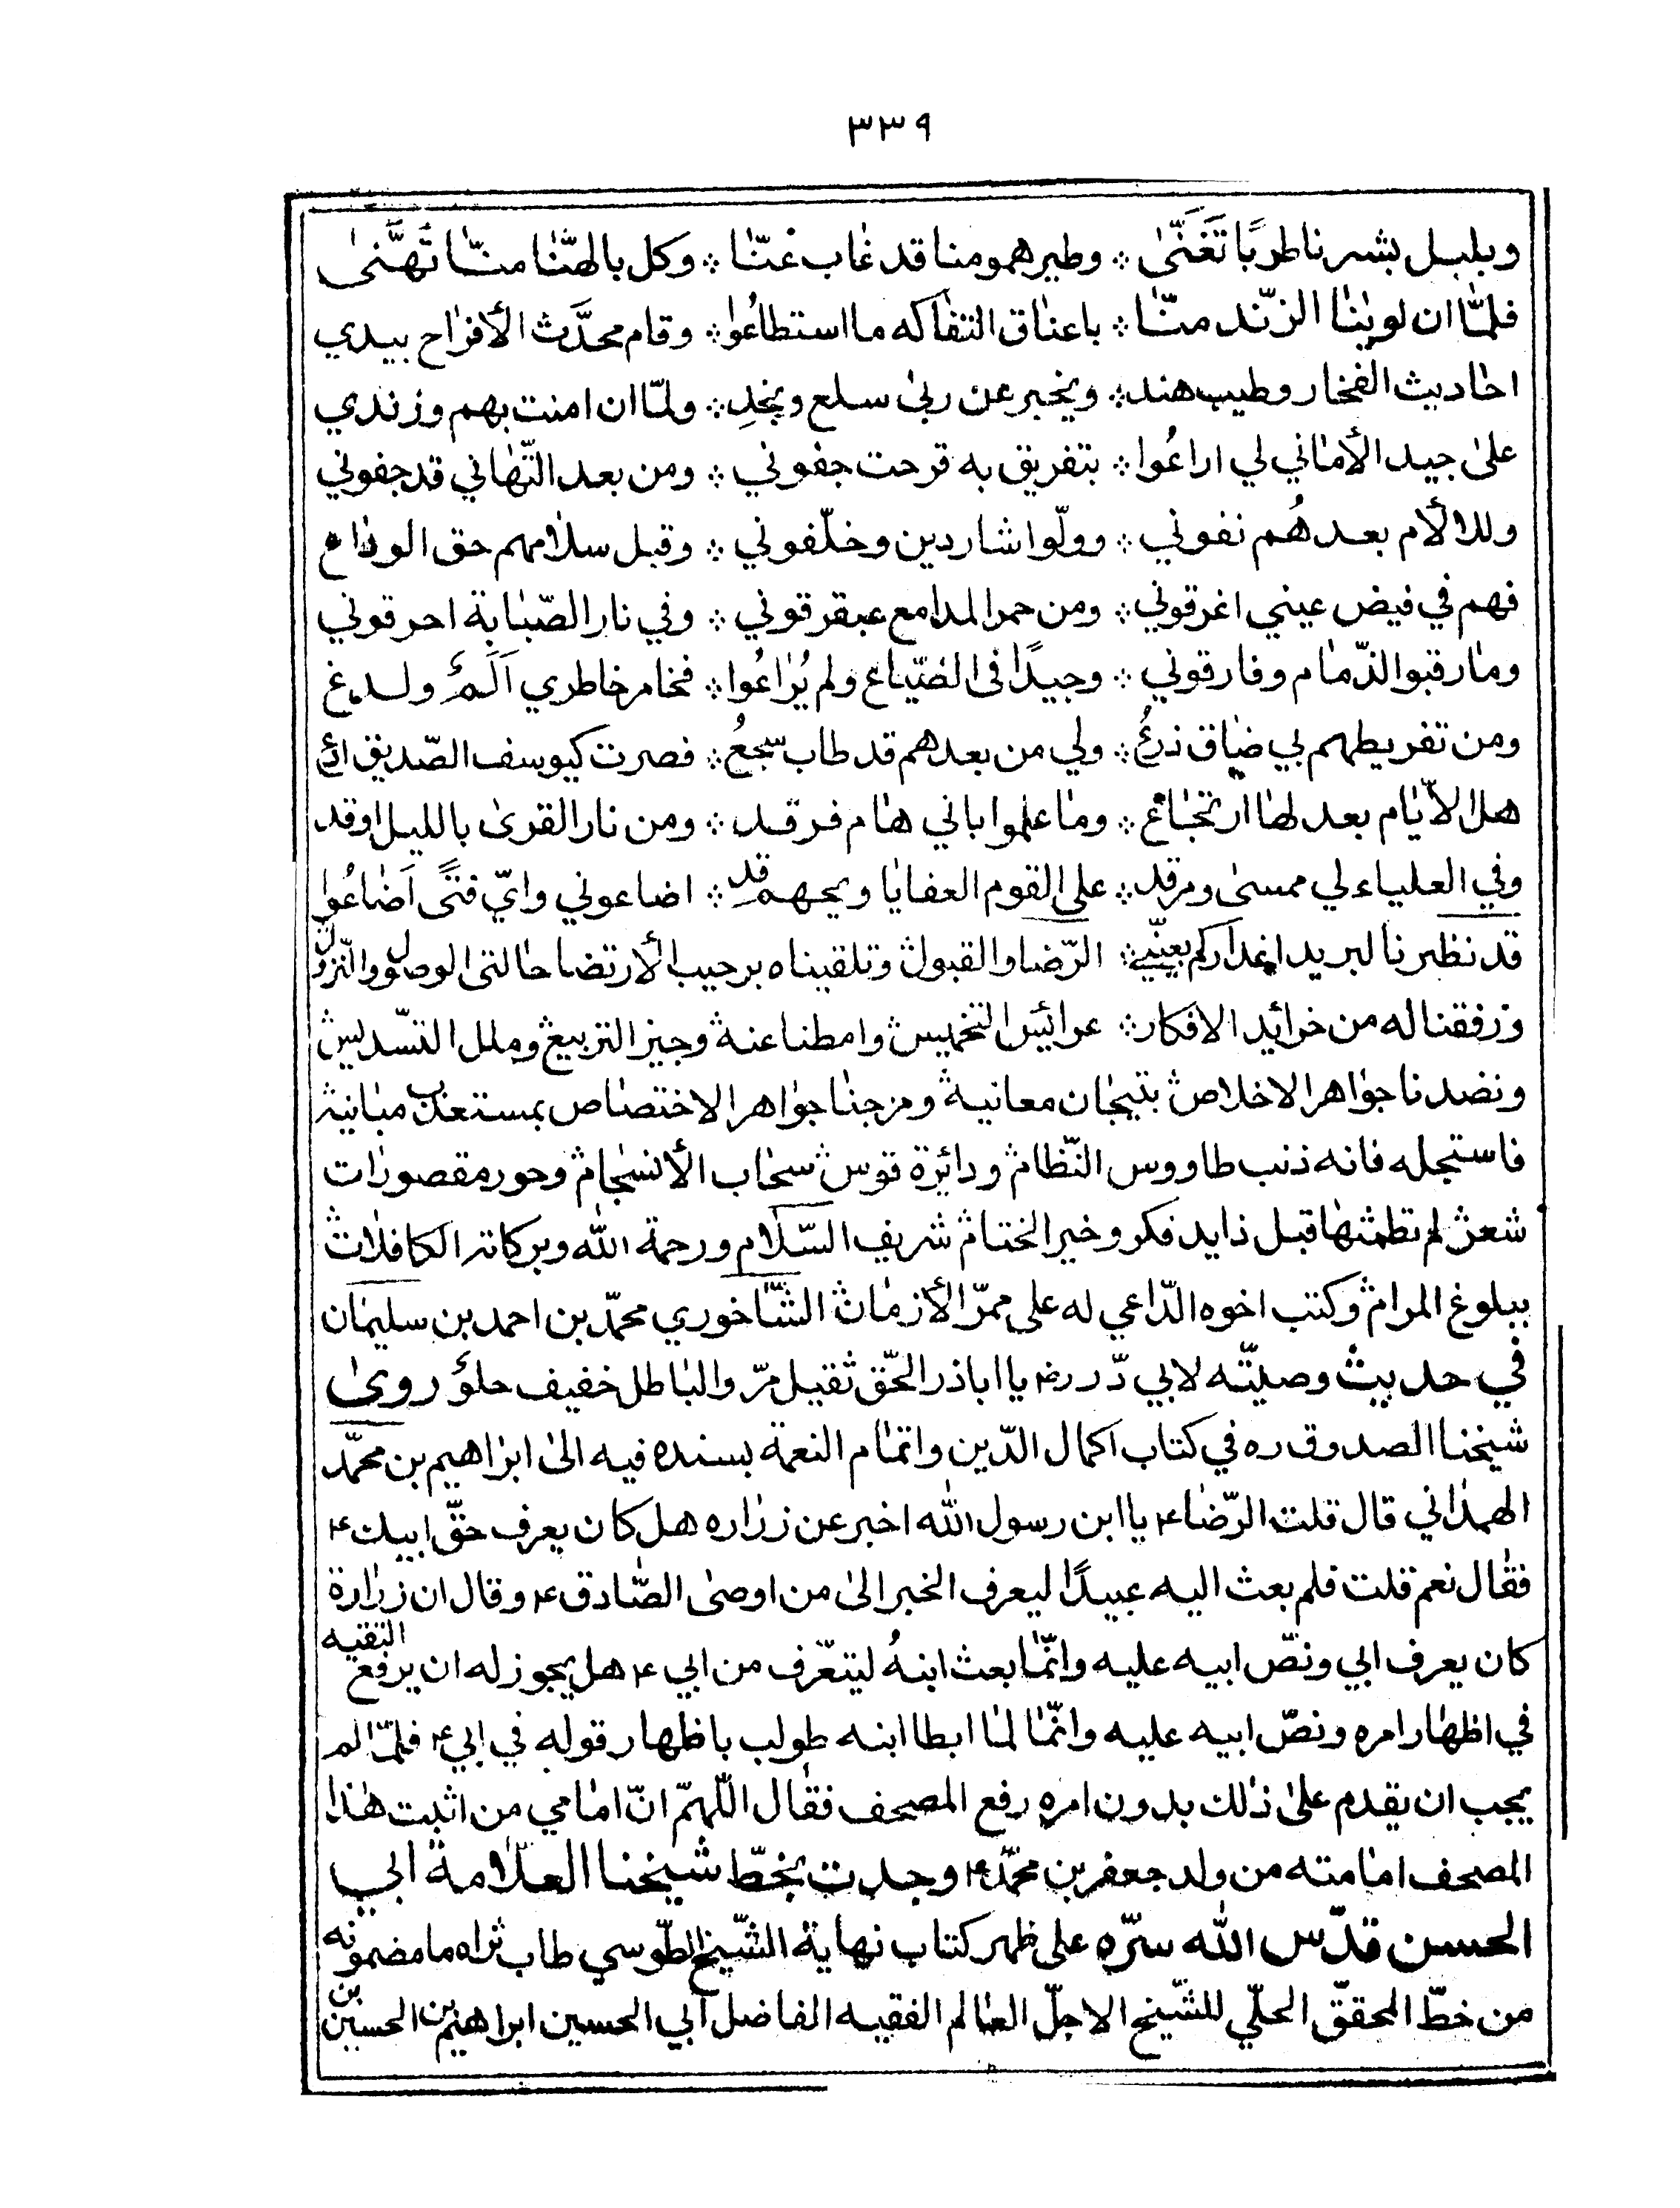 ٣٣٩
وبلبل بشرنا طربًا تَغَنّىٰ ⁘ وطير همومنا قد غاب عنّا ⁘ وكل بالهنا منّا تَهَنَّىٰ
فلمّا ان لوينا الزّند منّا ⁘ باعناق التفاكه ما استطاعُوا ⁘ وقام محدَّث الأفراح يبدي
احاديث الفخار وطيب هند ⁘ ويخبر عن ربىٰ سلع ونجدِ ⁘ ولمّا ان امنت بهم وزندي
علىٰ جيد الأماني لي اراعُوا ⁘ بتفريق به قرحت جفوني ⁘ ومن بعد التّهاني قد جفوني
وللالآم بعدهُم نفوني ⁘ وولّوا شاردين وخلّفوني ⁘ وقبل سلامهم حق الوداع
فهم في فيض عيني اغرقوني ⁘ ومن حمر المدامع عبقرقوني ⁘ وفي نار الصّبابة احرقوني
وما رقبوا الذّمام وفارقوني ⁘ وجيدًا في الضّياع ولم يُراعُوا ⁘ فخامر خاطري اَلَمٌ ولدغ
ومن تفريطهم بي ضاق ذرعٌ ⁘ ولي من بعدهم قد طاب سجعُ ⁘ فصرت كيوسف الصّديق ادعُ
هل الأيّام بعد لها ارتجاع ⁘ وما علموا باني هام فرقد ⁘ ومن نار القرىٰ بالليل اوقد
وفي العلياء لي ممسىٰ ومرقد ⁘ على القوم العفايا ويحهم قد ⁘ اضاعوني وايّ فتىً اَضاعُوا
قد نظرنا لبريد اعذاركم بعيني ⁘ الرّضا والقبول وتلقيناه برحيب الأرتضا حالتى الوصول والنّزول
وزففنا له من خرائد الافكار ⁘ عرائس التخميس وامطنا عنه وجيز التربيع وملل التسّديس
ونضدنا جواهر الاخلاص بتيجان معانيه ومزجنا جواهر الاختصاص بمستعذب مبانيه
فاستجله فانه ذنب طاووس النّظام ودائرة قوس سحاب الأنسجام وحور مقصورات
شعر لم تطمثها قبل ذا يد فكر وخير الختام شريف السّلام ورحمة الله وبركاته الكافلات
ببلوغ المرام وكتب اخوه الدّاعي له على ممرّ الأزمان الشّاخوري محمّد بن احمد بن سليمان
في حديث وصيّته لابي ذّر رض يا اباذر الحّق ثقيل مرّ والباطل خفيف حلوٌ روىٰ
شيخنا الصدوق ره في كتاب اكمال الدّين واتمام النعمة بسنده فيه الىٰ ابراهيم بن محمّد
الهمداني قال قلت الرّضا ع يا ابن رسول الله اخبر عن زراره هل كان يعرف حقّ ابيك ع
فقال نعم قلت فلم بعث اليه عبيدًا ليعرف الخبر الىٰ من اوصىٰ الصّادق ع وقال ان زرارة
كان يعرف ابي ونصّ ابيه عليه وانّما بعث ابنهُ ليتعّرف من ابي ع هل يجوز له ان يرفع التقيه
في اظهار امره ونصّ ابيه عليه وانّما لما ابطا ابنه طولب باظهار قوله في ابي ع فلمّا لم
يجب ان يقدم علىٰ ذلك بدون امره رفع المصحف فقال اللّهمّ انّ امامي من اثبت هذا
المصحف امامته من ولد جعفر بن محمّد ع وجدت بخطّ شيخنا العلّامة ابي
الحسن قدّس الله سرّه على ظهر كتاب نهاية الشّيخ الطّوسي طاب ثراه ما مضمونه
من خطّ المحقّق الحلّي للشّيخ الاجلّ العالم الفقيه الفاضل ابي الحسين ابراهيم بن الحسين بن